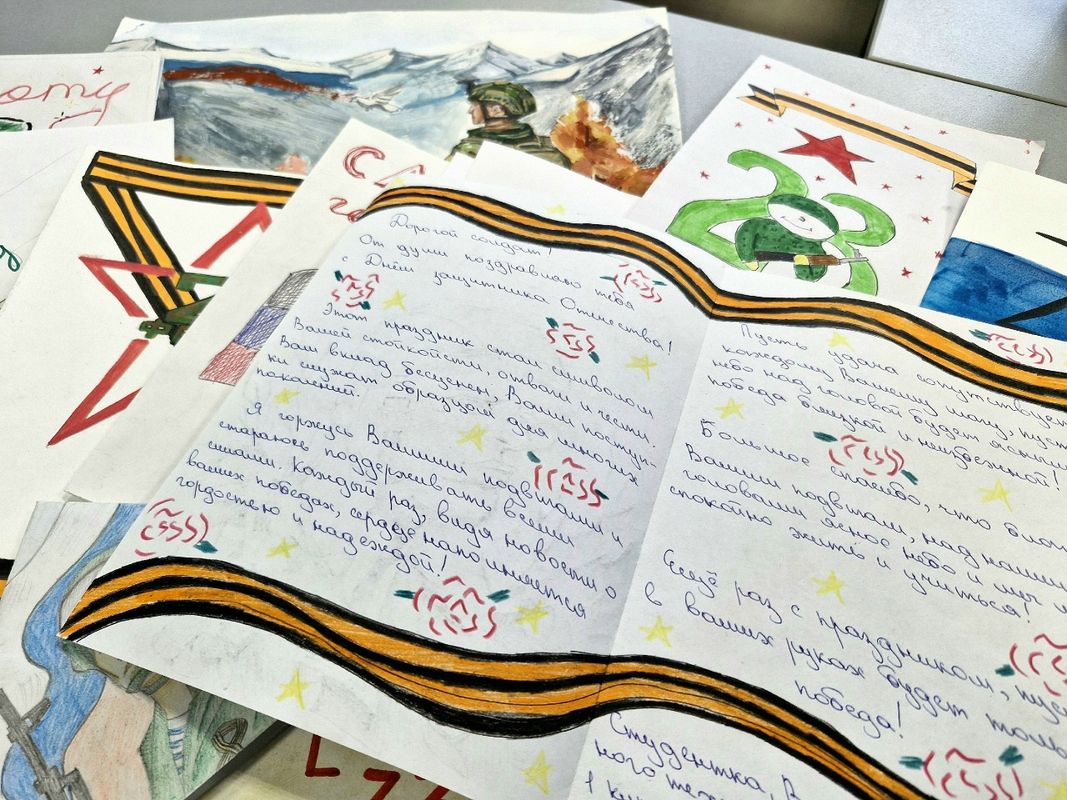 Дорогой солдат!
От души поздравляю тебя
с Днём защитника Отечества!
Этот праздник стал символом
Вашей стойкости, отваги и чести.
Ваш вклад бесценен, Ваши поступ-
ки служат образцом для многих
поколений.
Я горжусь Вашими подвигами и
стараюсь поддерживать всеми
силами. Каждый раз, видя новости о
ваших победах, сердце наполняется
гордостью и надеждой!
Пусть удача сопутствует
каждому Вашему шагу, пусть
небо над головой будет ясным
победа близкой и неизбежной!
Большое спасибо, что
Вашим подвигам, над нашими
головами ясное небо и мы
спокойно жить и учиться!
Ещё раз с праздником,
в ваших руках будет
победа!
Студентка,
ного
1
23